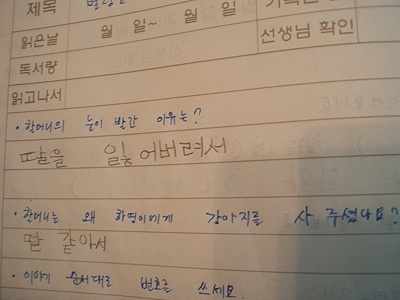 제목
읽은날 월 일~ 월 일
선생님 확인
독서량
읽고나서
· 할머니의 눈이 발간 이유는?
따님을 잃어버려서
· 할머니는 왜 하영이에게 강아지를 사 주셨나요?
딸 같아서
· 이야기 순서대로 번호를 쓰세요.